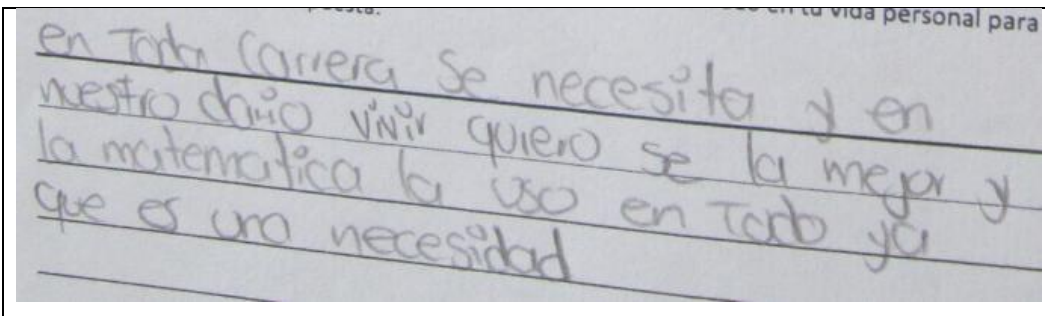 uesta.
en tu vida personal para
en Toda Carrera se necesita y en
nuestro dario vivir quiero se la mejor y
la matematica la uso en Todo ya
que es una necesidad